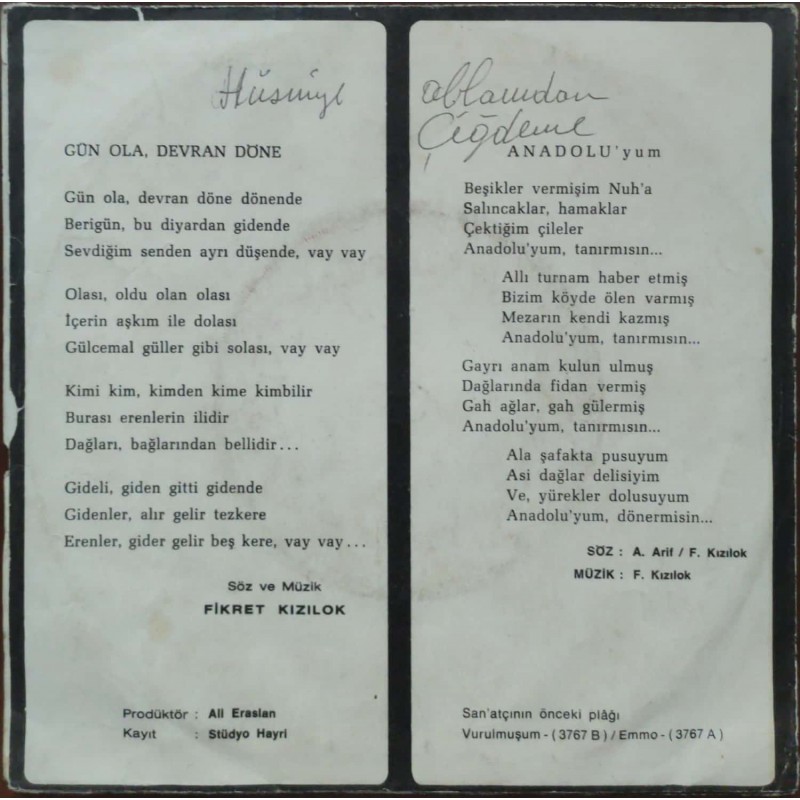 Hüsniye ablamdan
Çiğdeme
GÜN OLA, DEVRAN DÖNE
Gün ola, devran döne dönende
Berigün, bu diyardan gidende
Sevdiğim senden ayrı düşende, vay vay
Olası, oldu olan olası
İçerin aşkım ile dolası
Gülcemal güller gibi solası, vay vay
Kimi kim, kimden kime kimbilir
Burası erenlerin ilidir
Dağları, bağlarından bellidir...
Gideli, giden gitti gidende
Gidenler, alır gelir tezkere
Erenler, gider gelir beş kere, vay vay...
Söz ve Müzik
FİKRET KIZILOK
Prodüktör : Ali Eraslan
Kayıt : Stüdyo Hayri
ANADOLU'yum
Beşikler vermişim Nuh'a
Salıncaklar, hamaklar
Çektiğim çileler
Anadolu'yum, tanırmısın...
Allı turnam haber etmiş
Bizim köyde ölen varmış
Mezarın kendi kazmış
Anadolu'yum, tanırmısın...
Gayrı anam kulun ulmuş
Dağlarında fidan vermiş
Gah ağlar, gah gülermiş
Anadolu'yum, tanırmısın...
Ala şafakta pusuyum
Asi dağlar delisiyim
Ve, yürekler dolusuyum
Anadolu'yum, dönermisin...
SÖZ : A. Arif / F. Kızılok
MÜZİK : F. Kızılok
San'atçının önceki plâğı
Vurulmuşum - ( 3767 B ) / Emmo - ( 3767 A )